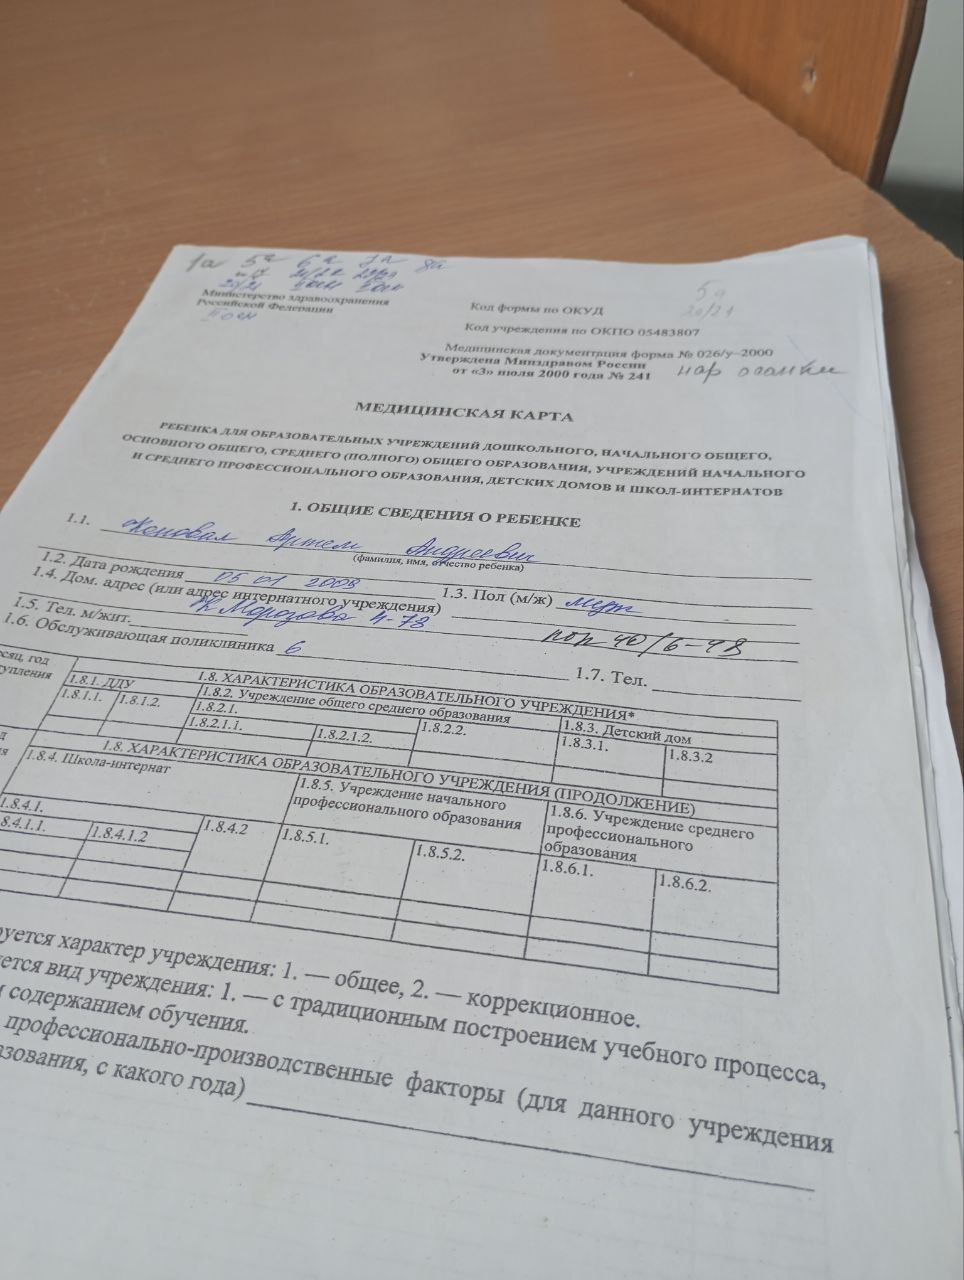 1а 5а 6а 7а 8а
20/21 21/22
Министерство здравоохранения
Российской Федерации
Код формы по ОКУД
5а
20/21
Код учреждения по ОКПО 05483807
Медицинская документация форма № 026/у–2000
Утверждена Минздравом России
от «3» июля 2000 года № 241
нар осанки
МЕДИЦИНСКАЯ КАРТА
РЕБЕНКА ДЛЯ ОБРАЗОВАТЕЛЬНЫХ УЧРЕЖДЕНИЙ ДОШКОЛЬНОГО, НАЧАЛЬНОГО ОБЩЕГО,
ОСНОВНОГО ОБЩЕГО, СРЕДНЕГО (ПОЛНОГО) ОБЩЕГО ОБРАЗОВАНИЯ, УЧРЕЖДЕНИЙ НАЧАЛЬНОГО
И СРЕДНЕГО ПРОФЕССИОНАЛЬНОГО ОБРАЗОВАНИЯ, ДЕТСКИХ ДОМОВ И ШКОЛ-ИНТЕРНАТОВ
1. ОБЩИЕ СВЕДЕНИЯ О РЕБЕНКЕ
1.1. Коновал Артем Андреевич
(фамилия, имя, отчество ребенка)
1.2. Дата рождения 05 01 2009 1.3. Пол (м/ж) муж
1.4. Дом. адрес (или адрес интернатного учреждения)
Морозова 4-78
1.5. Тел. м/жит. 40/6-48
1.6. Обслуживающая поликлиника 6 1.7. Тел.
1.8. ХАРАКТЕРИСТИКА ОБРАЗОВАТЕЛЬНОГО УЧРЕЖДЕНИЯ*
1.8.1. ДДУ 1.8.2. Учреждение общего среднего образования 1.8.3. Детский дом
1.8.1.1. 1.8.1.2. 1.8.2.1. 1.8.2.2. 1.8.3.1. 1.8.3.2
1.8.2.1.1. 1.8.2.1.2.
1.8. ХАРАКТЕРИСТИКА ОБРАЗОВАТЕЛЬНОГО УЧРЕЖДЕНИЯ (ПРОДОЛЖЕНИЕ)
1.8.4. Школа-интернат 1.8.5. Учреждение начального профессионального образования 1.8.6. Учреждение среднего профессионального образования
1.8.4.1. 1.8.4.2 1.8.5.1. 1.8.5.2. 1.8.6.1. 1.8.6.2.
8.4.1.1. 1.8.4.1.2
характер учреждения: 1. — общее, 2. — коррекционное.
вид учреждения: 1. — с традиционным построением учебного процесса,
содержанием обучения.
профессионально-производственные факторы (для данного учреждения
с какого года)